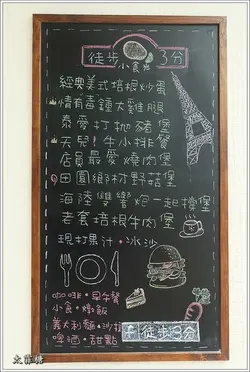 徒步 小食光 3分
經典美式培根炒蛋
情有毒鍾大雞腿
泰愛打拋豬堡
天兒!牛小排餐
店員最愛燒肉堡
田園鄉村野菇堡
海陸雙響炮一起擋堡
老套培根牛肉堡
現打果汁•冰沙
咖啡•早午餐
小食•燉飯
義大利麵•沙拉
啤酒•甜點
徒步3分